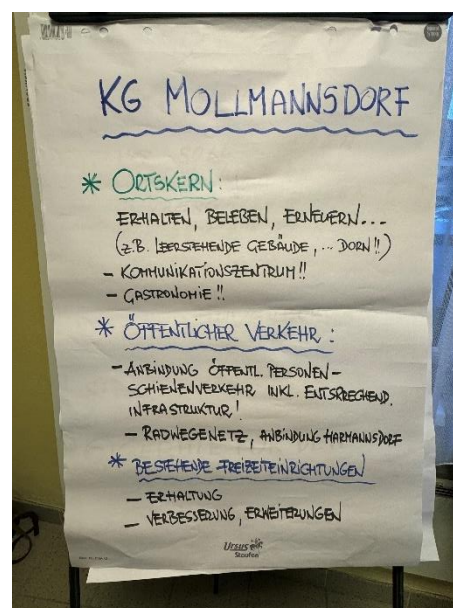 KG MOLLMANNSDORF
* ORTSKERN:
ERHALTEN, BELEBEN, ERNEUERN...
(Z.B. LEERSTEHENDE GEBÄUDE, ... DORN!!)
- KOMMUNIKATIONSZENTRUM!!
- GASTRONOMIE!!
* ÖFFENTLICHER VERKEHR:
- ANBINDUNG ÖFFENTL. PERSONEN-
SCHIENENVERKEHR INKL. ENTSPRECHEND.
INFRASTRUKTUR!
- RADWEGENETZ, ANBINDUNG HARMANNSDORF
* BESTEHENDE FREIZEITEINRICHTUNGEN
- ERHALTUNG
- VERBESSERUNG, ERWEITERUNGEN
Ursus
Staufen